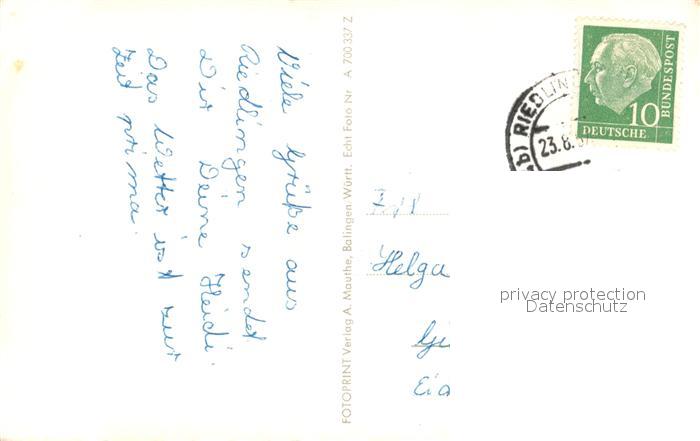 Viele Grüße aus
Riedlingen sendet
Dir Deine Heidi.
Das Wetter ist zur
Zeit prima.
FOTOPRINT Verlag A. Mauthe, Balingen-Württ. Echt Foto Nr A 700 337 Z
b) RIEDLIN
23.8.
10
DEUTSCHE
BUNDESPOST
Helga
privacy protection
Datenschutz